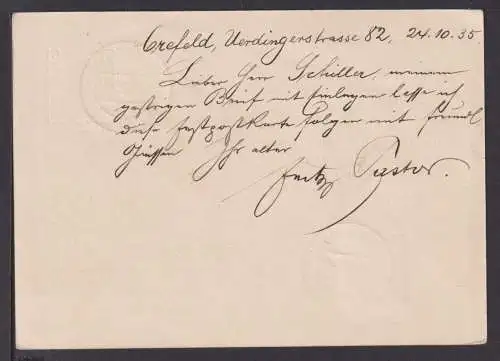 Crefeld, Uerdingerstrasse 82, 24.10.35
Lieber Herr Schiller, meinem
gestrigen Brief mit Einlagen lasse ich
diese Festpostkarte folgen mit freundl
Grüssen Ihr alter
Fritz Pastor.